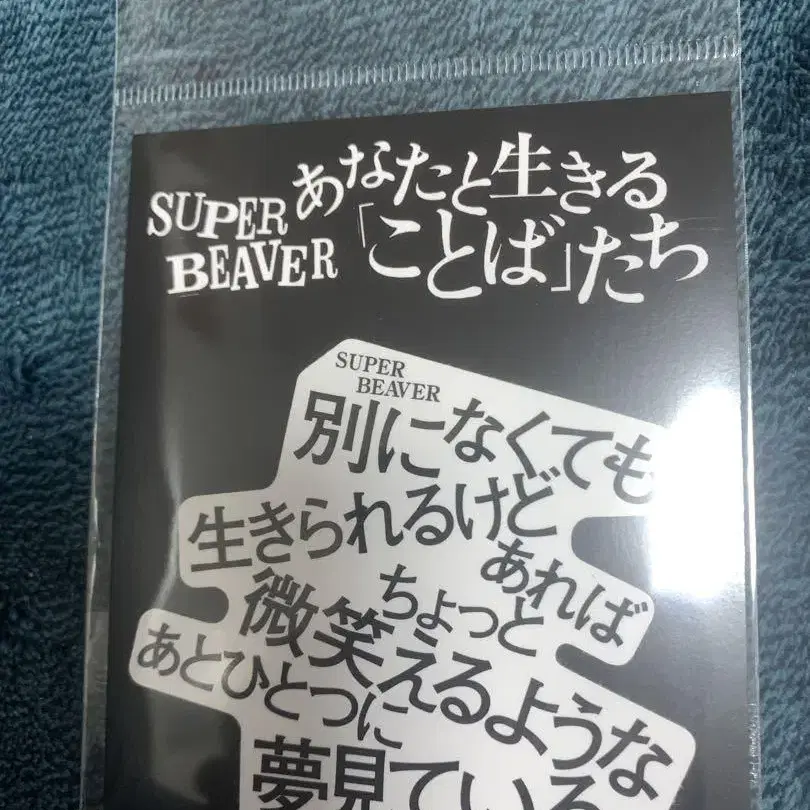 SUPER
BEAVER
あなたと生きる
「ことば」たち
SUPER
BEAVER
別になくても
生きられるけど
あれば
ちょっと
微笑えるような
あとひとつに
夢見ている